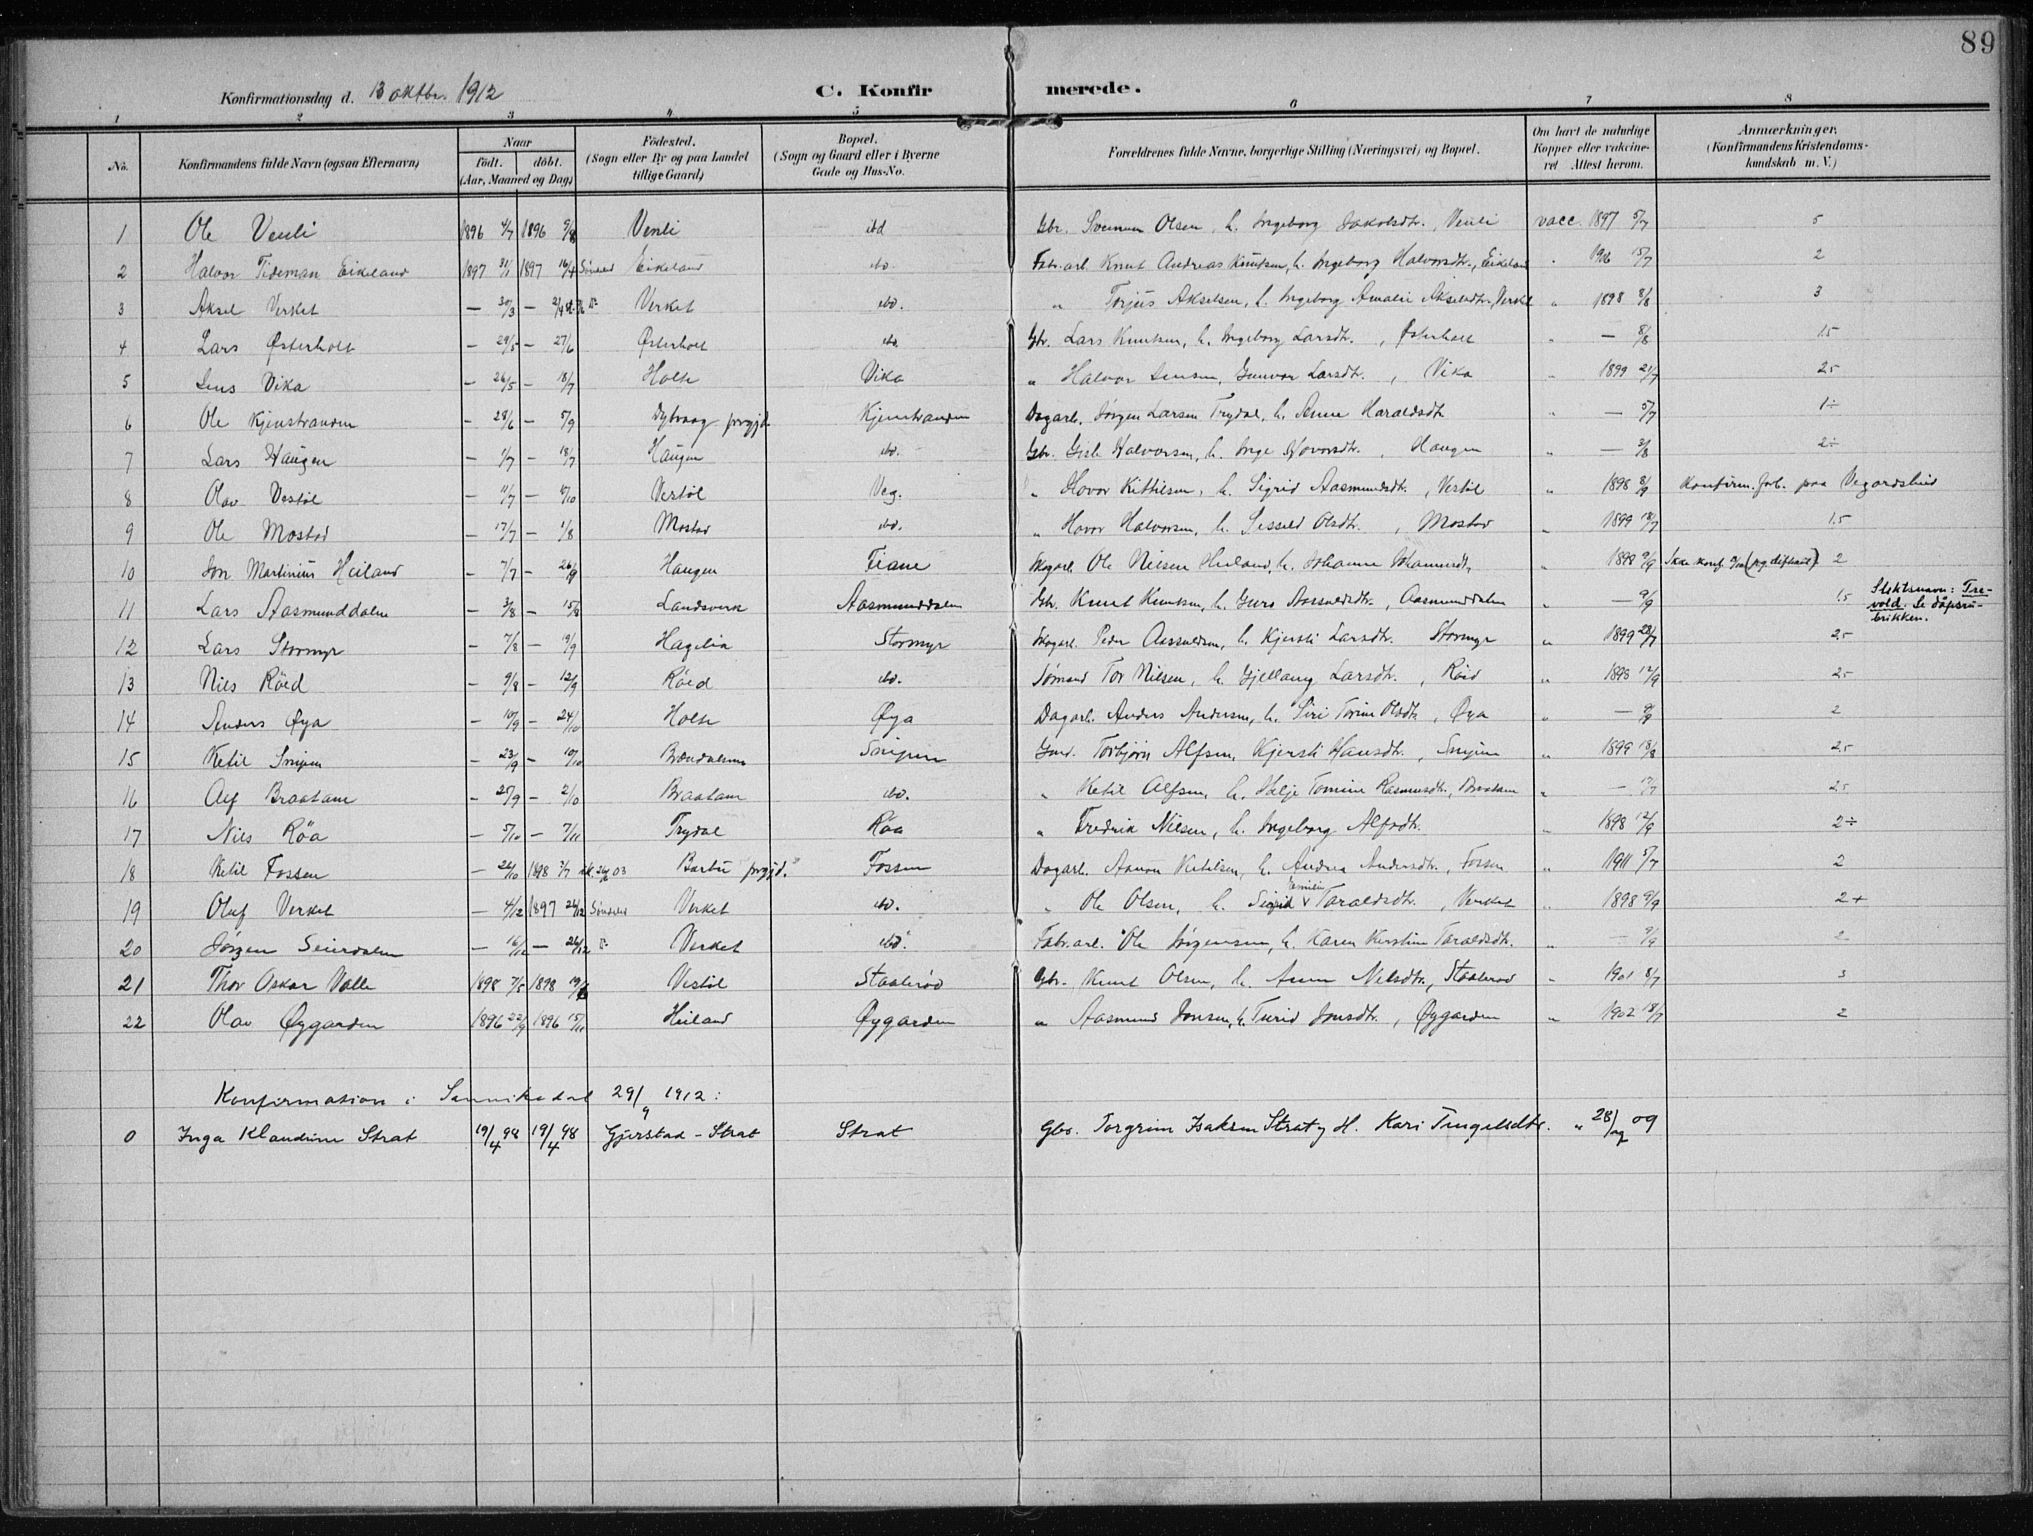 89
Konfirmationsdag d. 13 oktbr. 1912 C. Konfir merede.
1 2 3 4 5 6 7 8
No. Konfirmandens fulde Navn (ogsaa Efternavn) Naar født. døbt. (Aar, Maaned og Dag) Födested. (Sogn eller By og paa Landet tillige Gaard) Bopæl. (Sogn og Gaard eller i Byerne Gade og Hus-No. Forældrenes fulde Navne, borgerlige Stilling (Næringsvei) og Bopæl. Om havt de naturlige Kopper eller vakcineret Attest herom. Anmærkninger. (Konfirmandens Kristendomskundskab m. V.)
1 Ole Venli 1896 4/7 1896 9/8 Venli ibd Gbr. Olsen, h. Ingeborg Jakobsdtr., Venli vacc. 1897 5/7 5
2 Halvor Tideman Eikeland 1897 31/1 1897 16/4 Søndeled Eikeland ibd. Fabr.arb. Knut Andreas Knutsen, h. Ingeborg Halvorsdtr., Eikeland " 1906 15/7 2
3 Aksel Verket — 30/3 — 2/4 Verket ibd. " Torjus Akselsen, h. Ingeborg Amalie Akselsdtr., Verket " 1898 8/8 3
4 Lars Østerholt — 29/5 — 27/6 Østerholt ibd. Gbr. Lars Knutsen, h. Ingeborg Larsdtr., Østerholt " — 8/8 1.5
5 Jens Vika — 26/5 — 18/7 Holte Vika " Halvor Jensen, Gunvor Larsdtr., Vika " 1899 21/7 2.5
6 Ole Kjenstranden — 28/6 — 5/9 Dybvaag prgjd. Kjenstranden Dagarb. Jørgen Larsen Trydal, h. Anne Haraldsdtr. " — 5/7 1÷
7 Lars Haugen — 1/7 — 18/7 Haugen ibd. Gbr. Halvorsen, h. Inge Hovorsdtr., Haugen " — 2÷
8 Olav Vestøl — 11/7 — Vestøl Veg. " Hovor Kittilsen, h. Sigrid Aasmundsdtr., Vestøl " 1898 8/9 Konfirm. forb. paa Vegardshei
9 Ole Mostad — 17/7 — 1/8 Mostad ibd. " Hovor Halvorsen, h. Olsdtr., Mostad " 1899 18/7 1.5
10 Jon Martinius Heiland — 7/7 — 26/9 Haugen Fiane Skogarb. Ole Nielsen Heiland, h. Johanne " 1898 9/9 2
11 Lars Aasmunddalen — 3/8 — 15/8 Landsverk Aasmunddalen Gbr. Knut Knutsen, h. Guro, Aasmunddalen " — 9/9 1.5 Slektsnavn: Trevold. Se dåpsrubrikken.
12 Lars Stormyr — 7/8 — 19/9 Hagelia Stormyr Skogarb. Peder, h. Kjersti Larsdtr. Stormyr " 1899 28/7 2.5
13 Nils Röed — 9/8 — 12/9 Röed ibd. Sømand Tor Nilsen, h. Gjellaug Larsdtr., Röed " 1898 12/9 2.5
14 Anders Øya — 10/9 — 24/10 Holte Øya Dagarb. Anders Andersen, h. Siri Olsdtr., Øya " — 9/9 2
15 Ketil Snipen — 23/9 — 10/10 Brændalsmo Snipen Gmd. Torbjørn Alfsen, Kjersti Hansdtr., Snipen " 1899 18/8 2.5
16 Alf Braatane — 27/9 — 2/10 Braatane ibd. " Ketil Alfsen, h. Helje Tomine Rasmusdtr., Braatane " — 17/7 2.5
17 Nils Röa — 5/10 — 7/11 Trydal Röa " Fredrik Nilsen, h. Ingeborg Alfsdtr. " 1898 12/9 2÷
18 Ketil Fossen — 26/10 1898 Barbu prgjd. Fossen Dagarb. Aanon Ketilsen, h. Andrea Andersdtr., Fossen " 1911 5/7 2
19 Oluf Verket — 4/12 1897 26/12 Søndeled Verket ibd. " Ole Olsen, h. Sigrid Emilie Taraldsdtr., Verket " 1898 9/9 2+
20 Jörgen Seierdalen — 16/12 — 26/12 Verket ibd. Fabr.arb. Ole Jørgensen, h. Karen Kirstine Taraldsdtr. " — 9/9 2
21 Thor Oskar Valle 1898 7/5 1898 19/6 Vestöl Staalerød Gbr. Knut Olsen, h. Anne Nilsdtr., Staalerød " 1901 8/7 3
22 Olav Øygarden 1896 22/9 1896 15/11 Heiland Øygarden " Aasmund Jonsen, h. Turid Jonsdtr., Øygarden " 1902 18/7 2
Konfirmation i Sannikedal 29/9 1912:
0 Inga Klaudine Strat 19/4 98 19/4 98 Gjerstad - Strat Strat Gbr. Torgrim Isaksen Strat og H. Kari Tingelsdtr. " 28/9 09